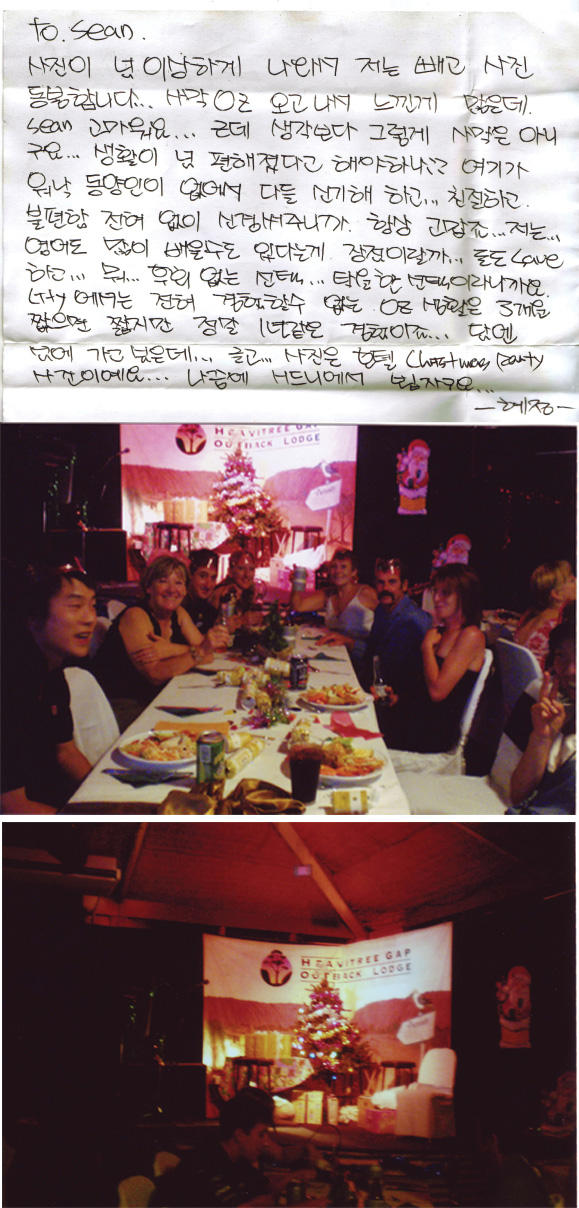 to. Sean.
사진이 넘 이상하게 나와서 저는 빼고 사진
동봉합니다... 사막 OZ 오고 내서 느낀게 많은데.
Sean 고마워요... 근데 생각보다 그렇게 사막은 아니
구요... 생활이 넘 편해졌다고 해야하나?? 여기가
워낙 동양인이 없어서 다들 신기해 하고... 친절하고.
불편함 전혀 없이 신경써주니까. 항상 고맙죠... 저는...
영어도 많이 배울수도 있다는게 장점이랄까... 돈도 save
하고... 뭐... 후회 없는 선택... 탁월한 선택이라니까요.
city 에서는 전혀 경험할수 없는 OZ 생활은 3개월
짧으면 짧지만 정말 1년같은 경험이죠...
에 가고 싶은데... 글고... 사진은 호텔 Christmas party
사진이에요... 나중에 시드니에서 봅자구요...
-혜정-
HEAVITREE GAP
OUTBACK LODGE
HEAVITREE GAP
OUTBACK LODGE